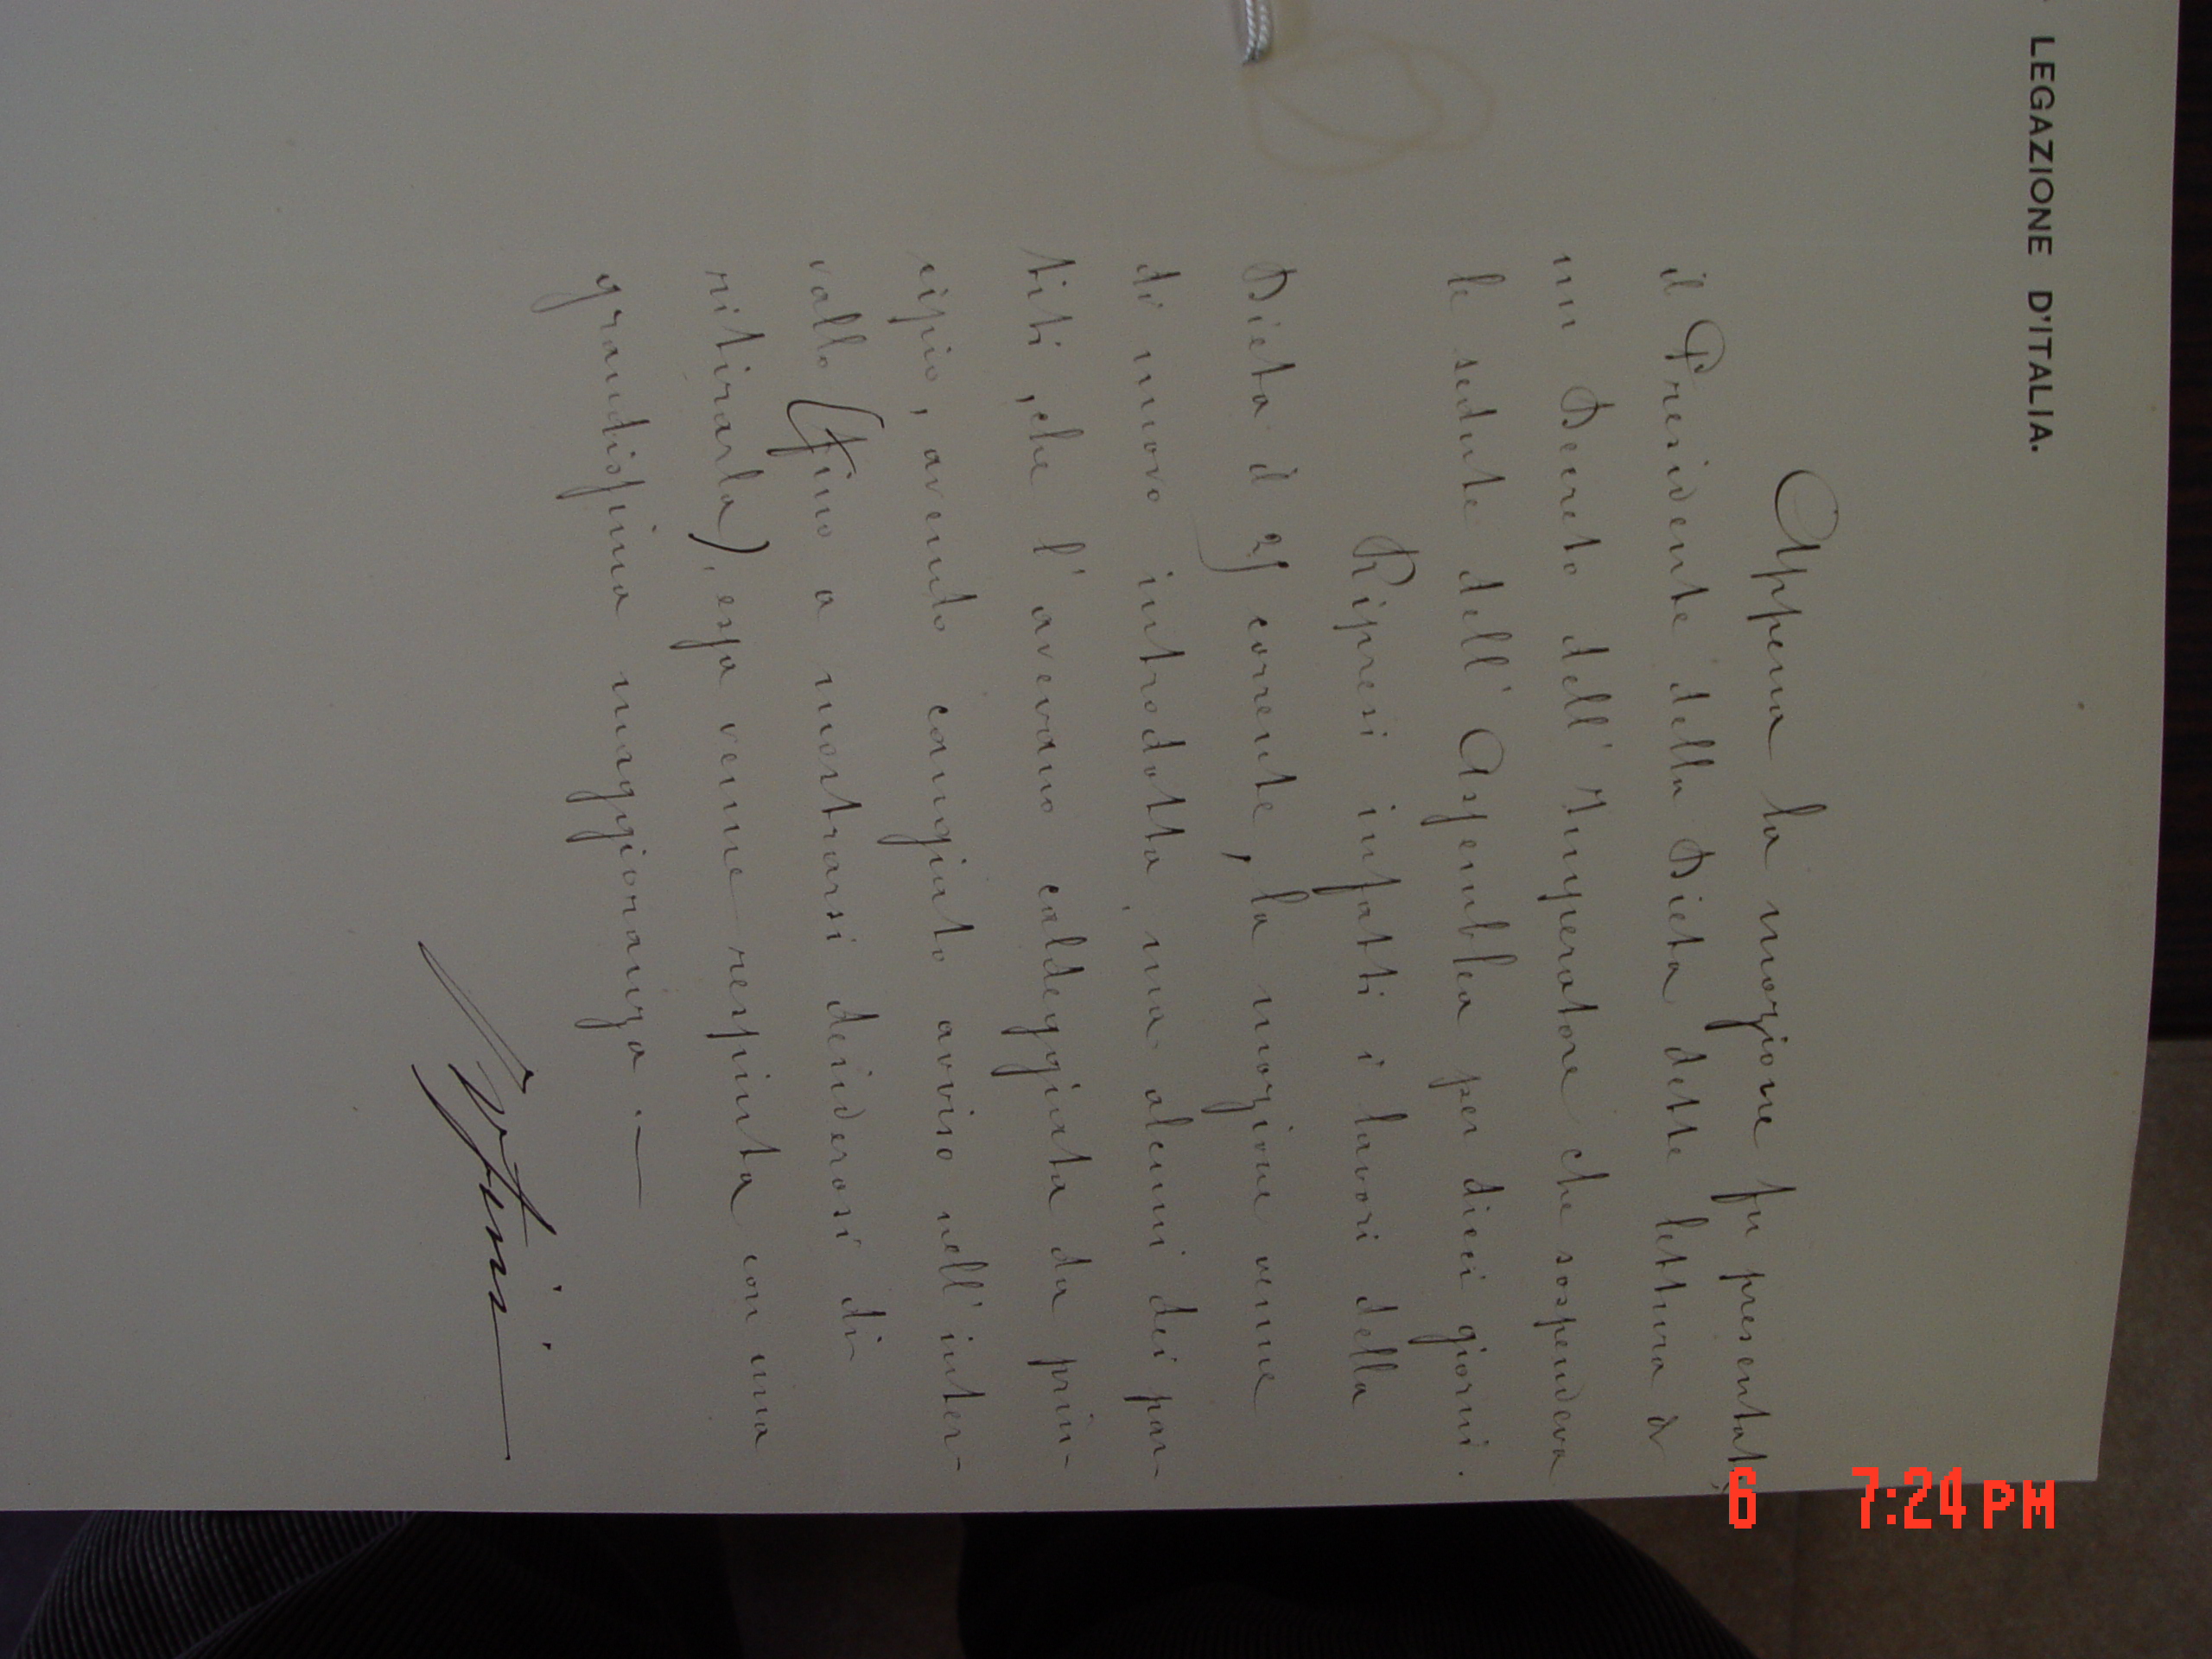 LEGAZIONE D'ITALIA.
Appena la mozione fu presentata
il Presidente della Dieta dette lettura di
un Decreto dell'Imperatore che sospendeva
le sedute dell'Assemblea per dieci giorni.
Ripresi infatti i lavori della
Dieta il 25 corrente, la mozione venne
di nuovo introdotta, ma alcuni dei par-
titi, che l'avevano caldeggiata da prin-
cipio, avendo cangiato avviso nell'inter-
vallo (fino a mostrarsi desiderosi di
ritirarla), essa venne respinta con una
grandissima maggioranza. —
6 7:24 PM